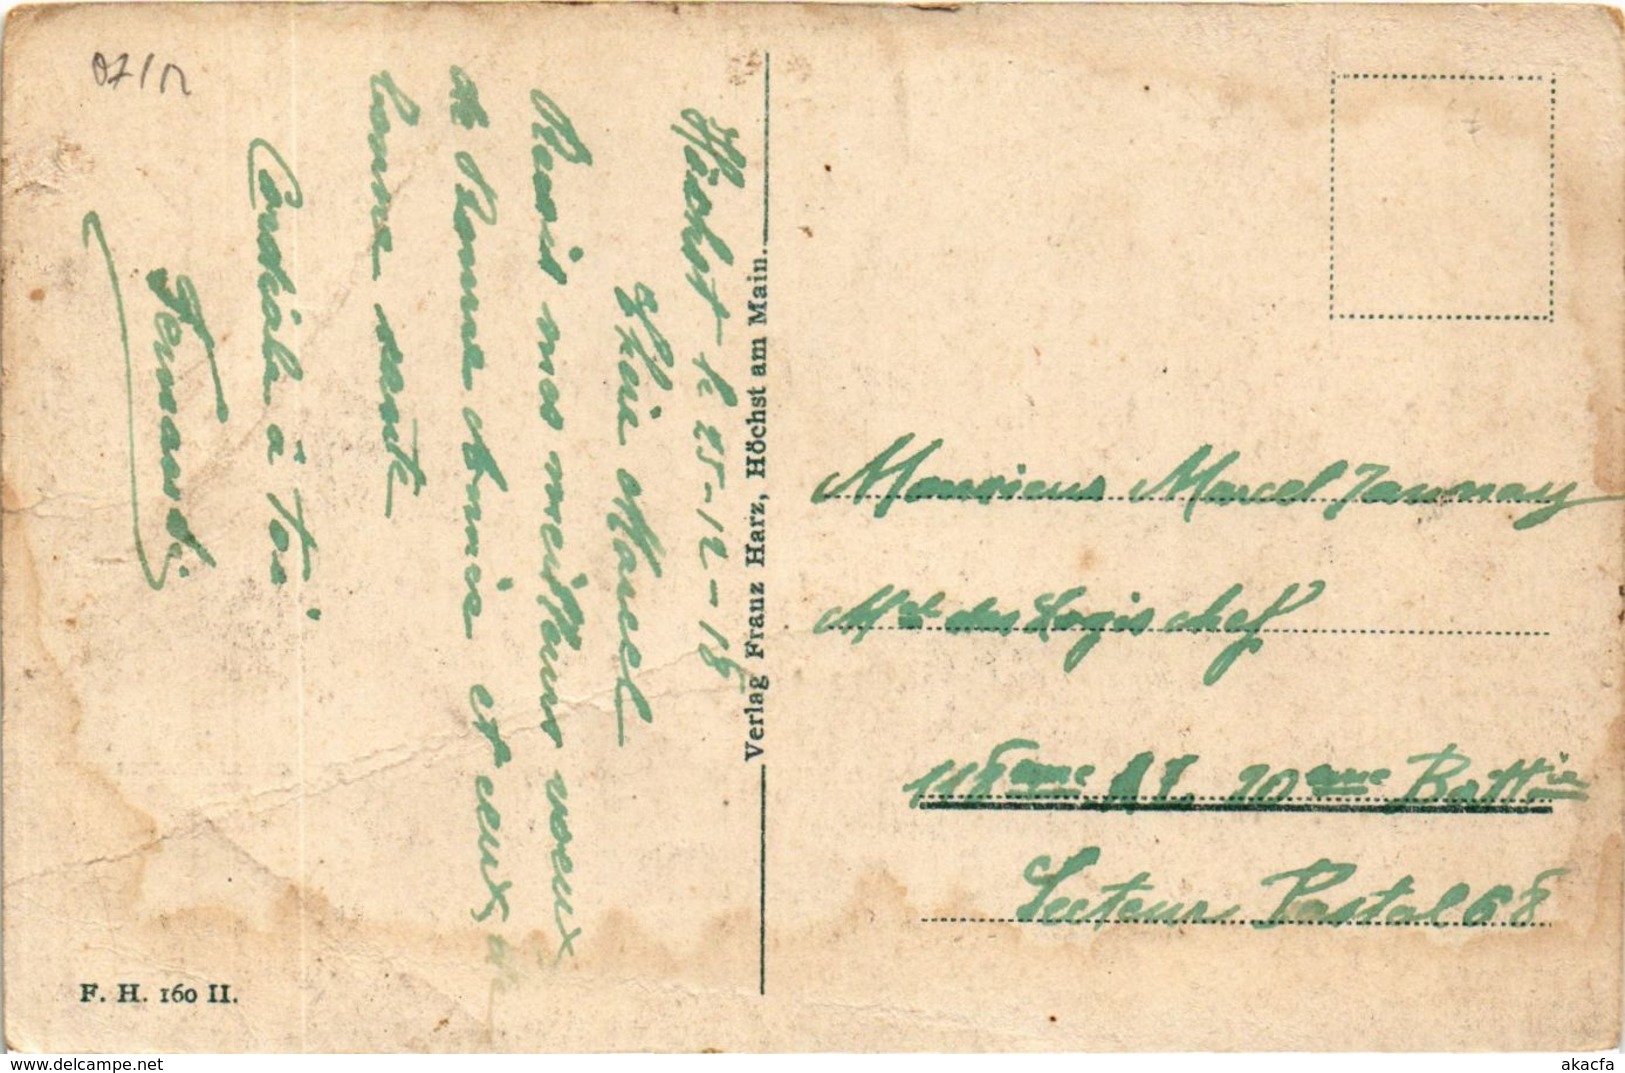 07/12
Höchst le 25-12-18
Cher Marcel
Reçois mes meilleurs voeux
de Bonne Année et ceux de
bonne santé
Cordiale à toi
Verlag Franz Harz, Höchst am Main.
Monsieur Marcel Jaunnay
Mal des Logis chef
118ème A L 20ème Battie
Secteur Postal 68
F. H. 160 II.
delcampe.net
akacfa